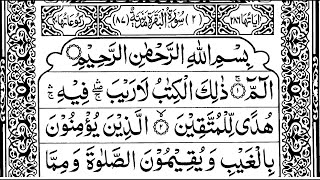 اٰيَاتُهَا ٢٨٦ (٢) سُوْرَةُ الْبَقَرَةِ مَدَنِيَّةٌ (٨٧) رُكُوْعَاتُهَا ٤٠
بِسْمِ اللّٰهِ الرَّحْمٰنِ الرَّحِيْمِ
الٓمّٓ ۚ ذٰلِكَ الْكِتٰبُ لَا رَيْبَ ۛ فِيْهِ ۛ
هُدًى لِّلْمُتَّقِيْنَ ۙ الَّذِيْنَ يُؤْمِنُوْنَ
بِالْغَيْبِ وَيُقِيْمُوْنَ الصَّلٰوةَ وَمِمَّا